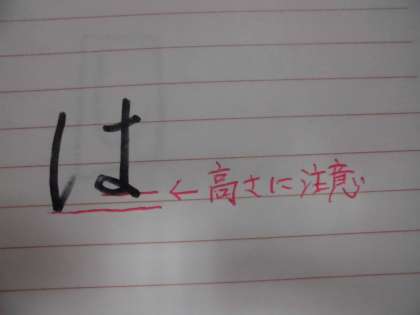 は ←高さに注意